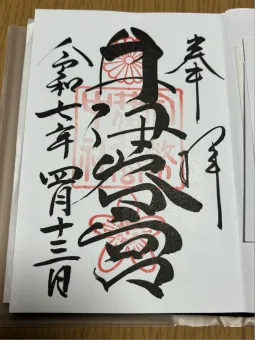 奉拝
井伊谷宮
令和七年四月十三日